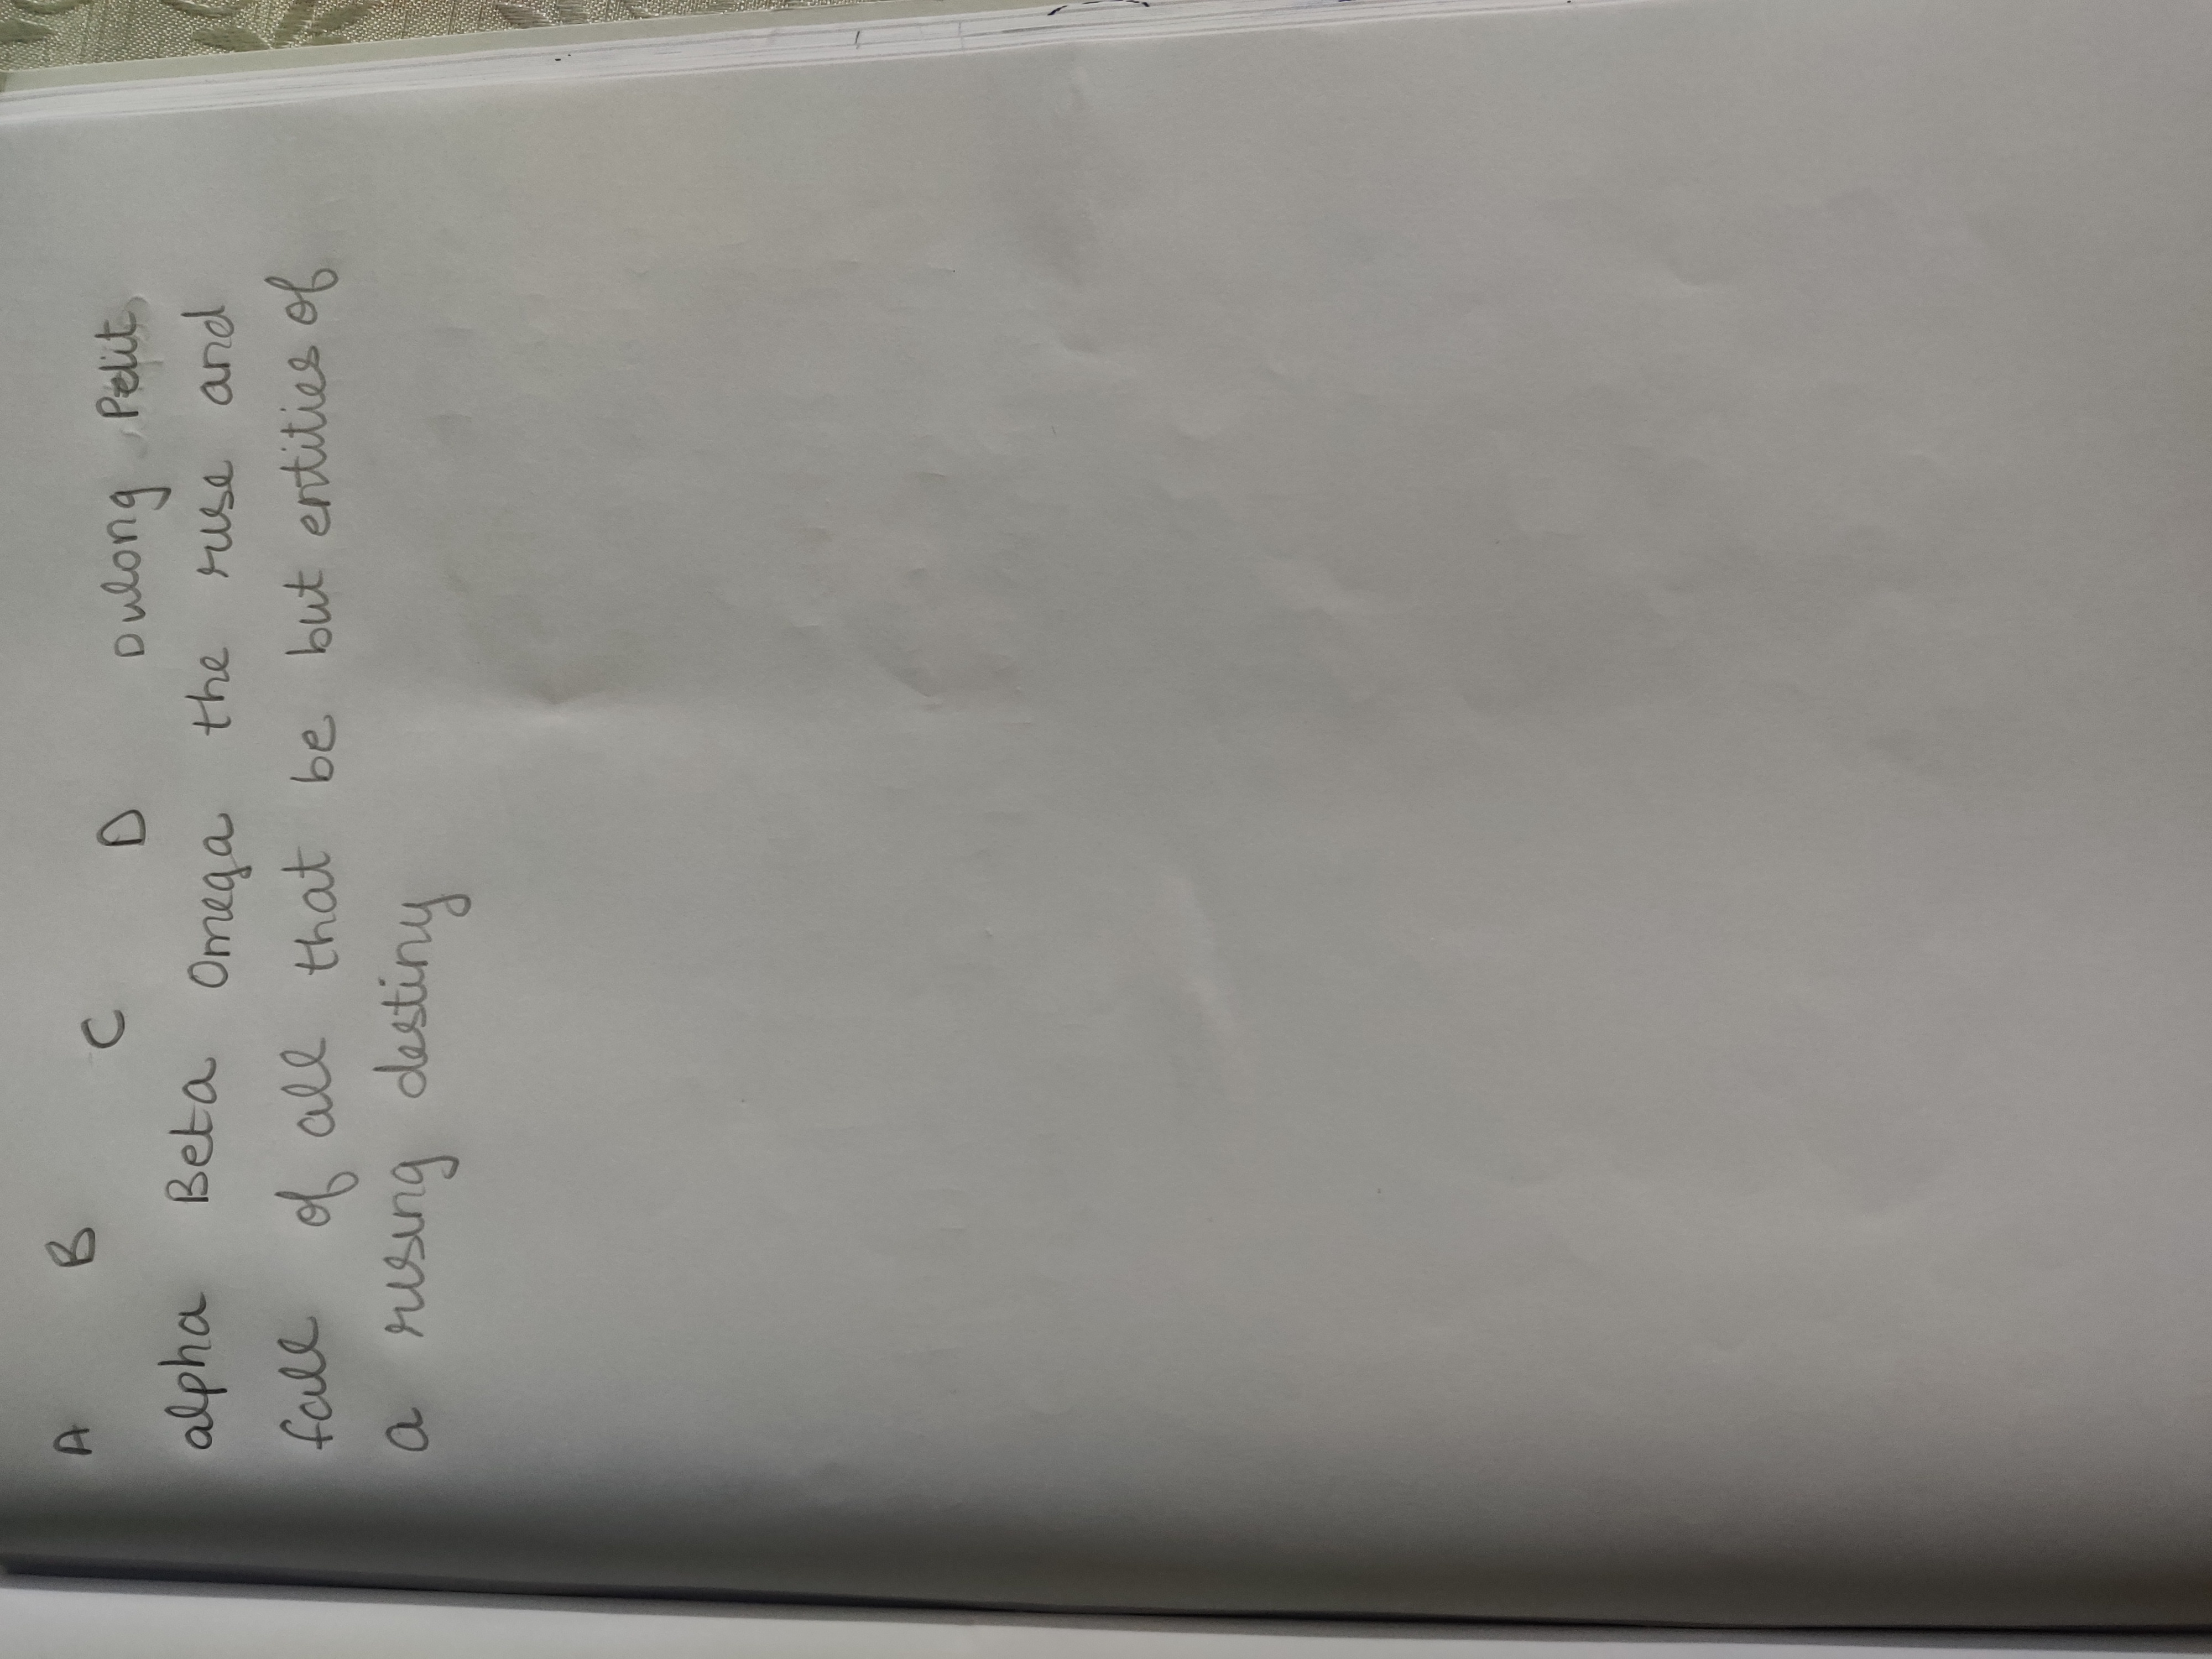 A B C D Dulong Petit
alpha Beta Omega the rise and
fall of all that be but entities of
a rising destiny